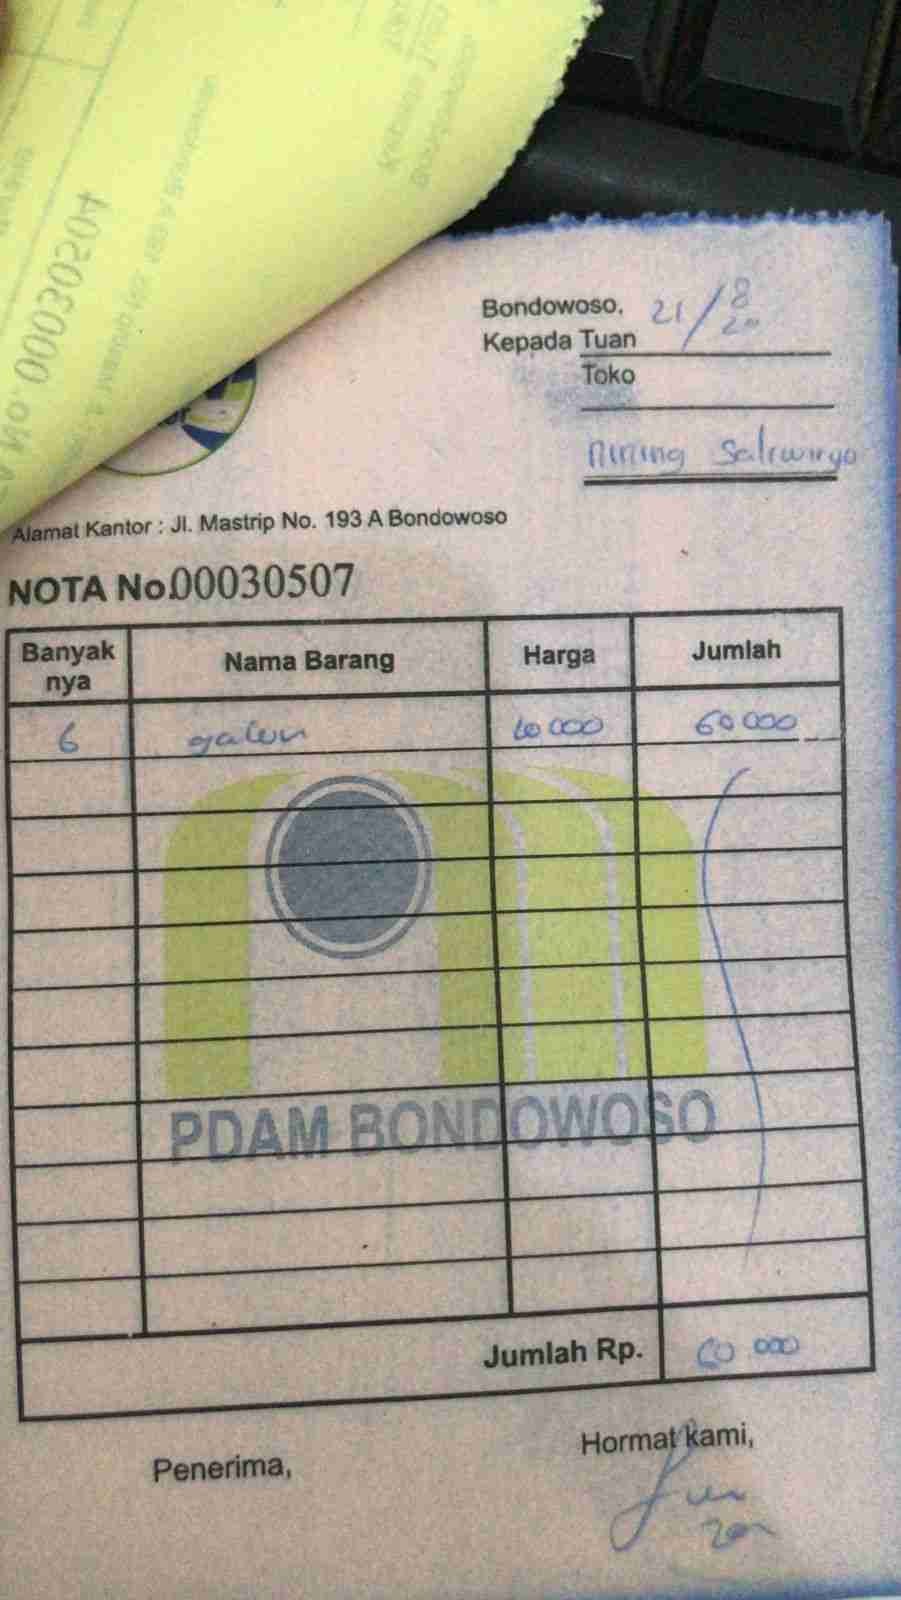 No. 00030504
Bondowoso, 21/8 20
Kepada Tuan
Toko
Nining Saliwiryo
Alamat Kantor : Jl. Mastrip No. 193 A Bondowoso
NOTA No.00030507
Banyak nya Nama Barang Harga Jumlah
6 galon 10 000 60 000
PDAM BONDOWOSO
Jumlah Rp. 60 000
Penerima, Hormat kami,